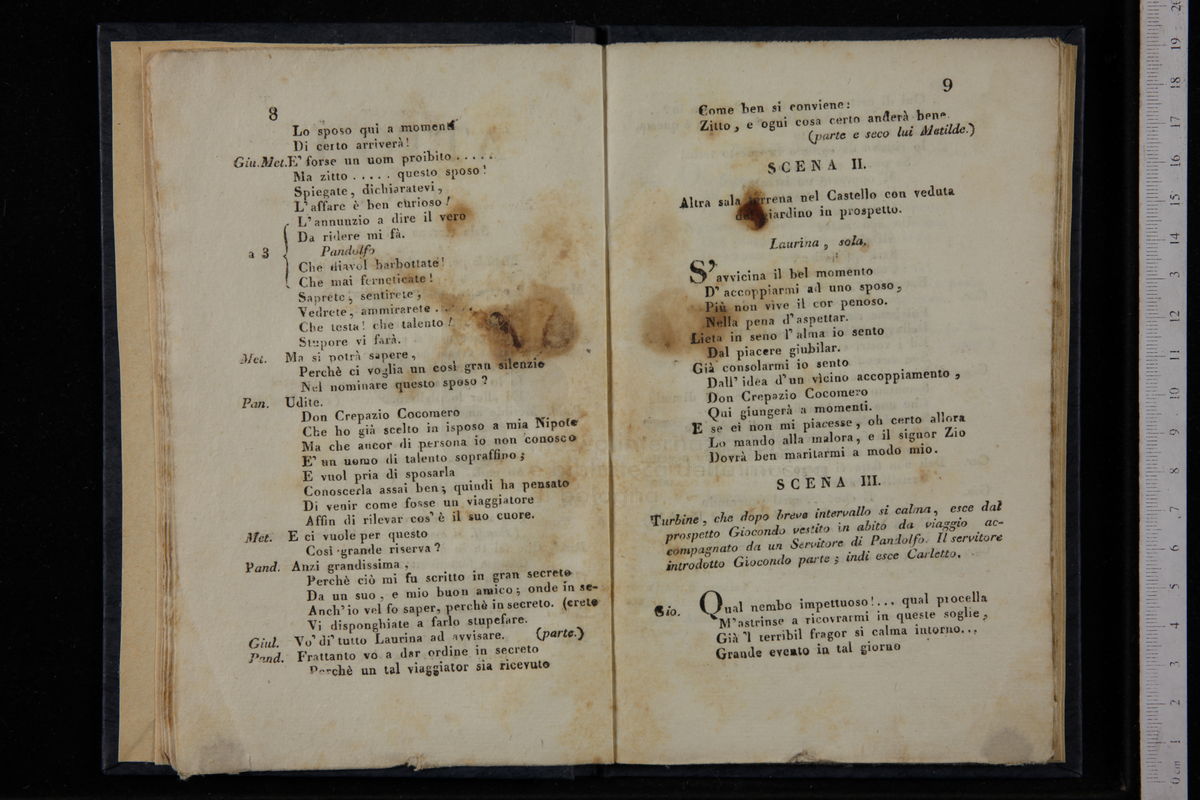 8
Lo sposo qui a momenti
Di certo arriverà!
Giu.Met. E' forse un uom proibito . . . . .
Ma zitto . . . . . questo sposo!
Spiegate, dichiaratevi,
L'affare è ben curioso!
L'annunzio a dire il vero
Da ridere mi fà.
a 3 Pandolfo
Che diavol barbottate!
Che mai ferneticate!
Saprete, sentirete,
Vedrete, ammirarete . . .
Che testa! che talento!
Stupore vi farà.
Met. Ma si potrà sapere,
Perchè ci voglia un così gran silenzio
Nel nominare questo sposo?
Pan. Udite.
Don Crepazio Cocomero
Che ho già scelto in isposo a mia Nipote
Ma che ancor di persona io non conosco
E' un uomo di talento sopraffino;
E vuol pria di sposarla
Conoscerla assai ben; quindi ha pensato
Di venir come fosse un viaggiatore
Affin di rilevar cos'è il suo cuore.
Met. E ci vuole per questo
Così grande riserva?
Pand. Anzi grandissima,
Perchè ciò mi fu scritto in gran secreto
Da un suo, e mio buon amico; onde in se-
Anch'io vel fo saper, perchè in secreto. (creto
Vi disponghiate a farlo stupefare.
Giul. Vo' di' tutto Laurina ad avvisare. (parte.)
Pand. Frattanto vo a dar ordine in secreto
Perchè un tal viaggiator sia ricevuto
9
Come ben si conviene:
Zitto, e ogni cosa certo anderà bene.
(parte e seco lui Metilde.)
SCENA II.
Altra sala terrena nel Castello con veduta
del giardino in prospetto.
Laurina, sola.
S'avvicina il bel momento
D'accoppiarmi ad uno sposo,
Più non vive il cor penoso.
Nella pena d'aspettar.
Lieta in seno l'alma io sento
Dal piacere giubilar.
Già consolarmi io sento
Dall'idea d'un vicino accoppiamento,
Don Crepazio Cocomero
Qui giungerà a momenti.
E se ei non mi piacesse, oh certo allora
Lo mando alla malora, e il signor Zio
Dovrà ben maritarmi a modo mio.
SCENA III.
Turbine, che dopo breve intervallo si calma, esce dal
prospetto Giocondo vestito in abito da viaggio ac-
compagnato da un Servitore di Pandolfo. Il servitore
introdotto Giocondo parte; indi esce Carletto.
Gio. Qual nembo impettuoso!... qual procella
M'astrinse a ricovrarmi in queste soglie,
Già 'l terribil fragor si calma intorno...
Grande evento in tal giorno